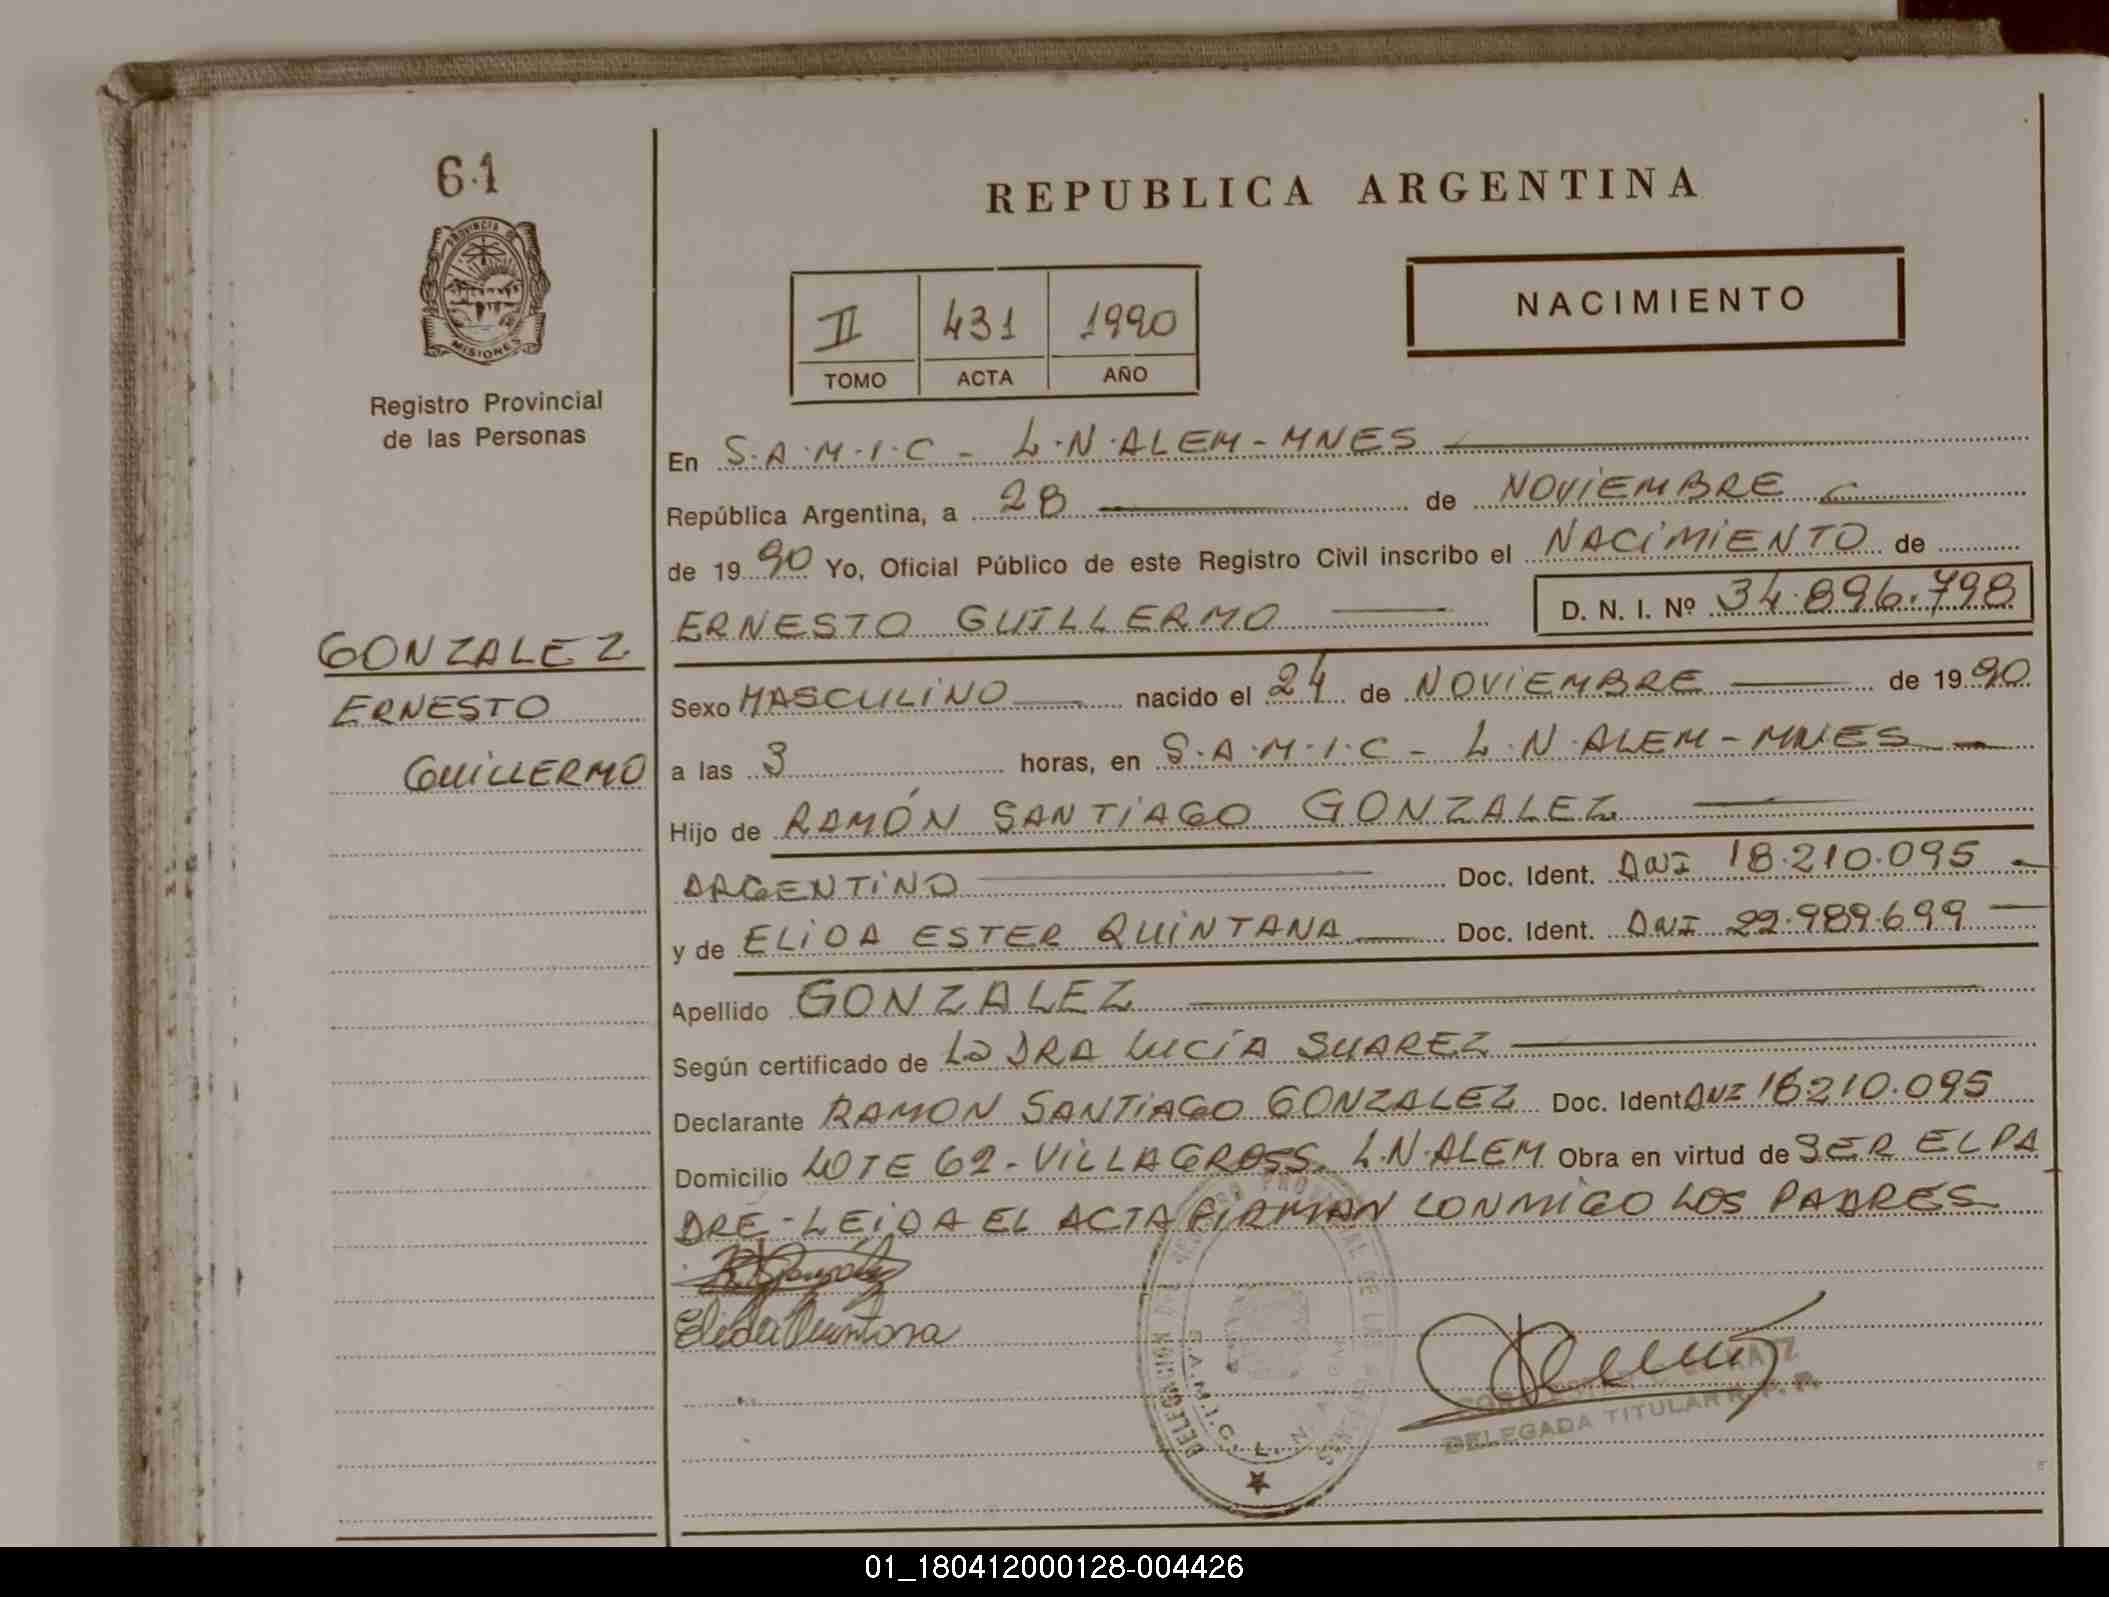 61
PROVINCIA DE
MISIONES
Registro Provincial
de las Personas
GONZALEZ
ERNESTO
GUILLERMO
REPUBLICA ARGENTINA
II 431 1990
TOMO ACTA AÑO
NACIMIENTO
En S.A.M.I.C - L.N.ALEM-MNES
República Argentina, a 28 de NOVIEMBRE
de 1990 Yo, Oficial Público de este Registro Civil inscribo el NACIMIENTO de
ERNESTO GUILLERMO D. N. I. Nº 34.896.798
Sexo MASCULINO nacido el 24 de NOVIEMBRE de 1990
a las 3 horas, en S.A.M.I.C - L.N.ALEM-MNES
Hijo de RAMÓN SANTIAGO GONZALEZ
ARGENTINO Doc. Ident. DNI 18.210.095
y de ELIDA ESTER QUINTANA Doc. Ident. DNI 22.989.699
Apellido GONZALEZ
Según certificado de La DRA LUCÍA SUAREZ
Declarante RAMON SANTIAGO GONZALEZ Doc. Ident DNI 18.210.095
Domicilio LOTE 62-VILLAGROSS. L.N.ALEM Obra en virtud de SER EL PA
DRE-LEIDA EL ACTA FIRMAN CONMIGO LOS PADRES
Elida Quintana
DELEGACION
S.A.M.I.C. L. N.
DELEGADA TITULAR R. P. P.
01_180412000128-004426